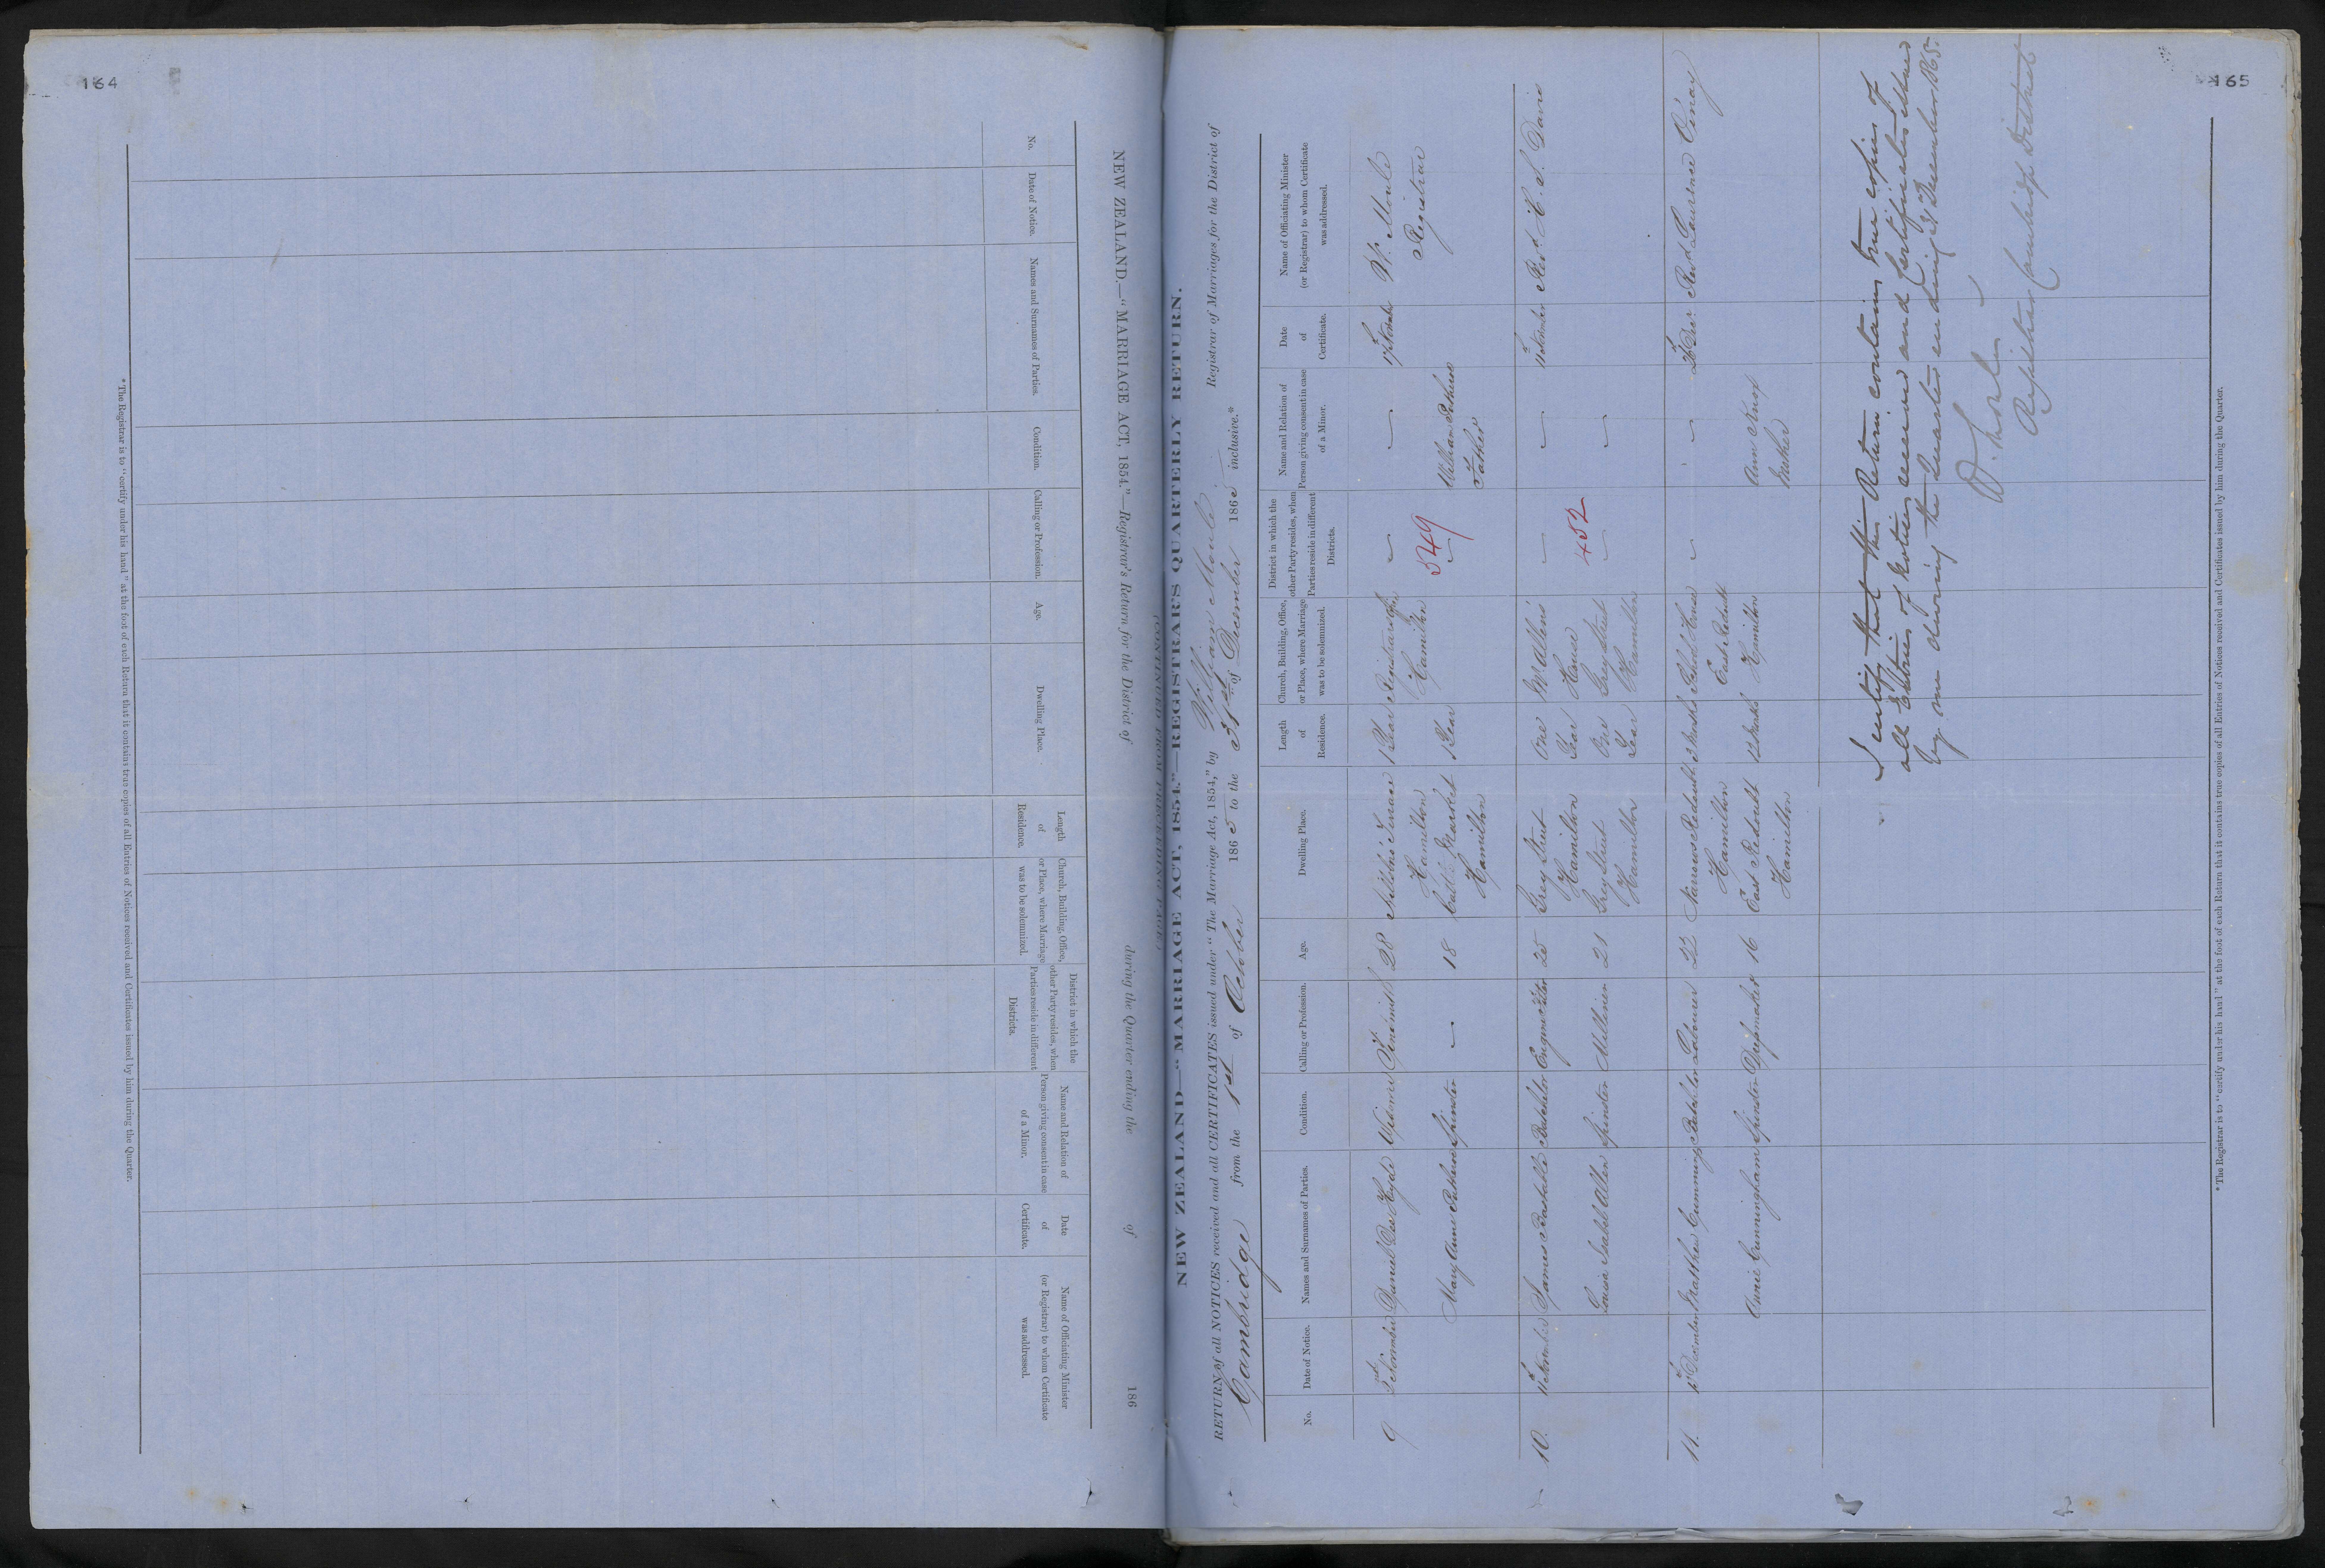 164
NEW ZEALAND.—"MARRIAGE ACT, 1854."—Registrar's Return for the District of during the Quarter ending the of 186
No.
Date of Notice.
Names and Surnames of Parties.
Condition.
Calling or Profession.
Age.
Dwelling Place.
Length
of
Residence.
Church, Building, Office,
or Place, where Marriage
was to be solemnized.
District in which the
other Party resides, when
Parties reside in different
Districts.
Name and Relation of
Person giving consent in case
of a Minor.
Date
of
Certificate.
Name of Officiating Minister
(or Registrar) to whom Certificate
was addressed.
*The Registrar is to "certify under his hand" at the foot of each Return that it contains true copies of all Entries of Notices received and Certificates issued by him during the Quarter.
165
NEW ZEALAND—"MARRIAGE ACT, 1854."—REGISTRAR'S QUARTERLY RETURN.
RETURN of all NOTICES received and all CERTIFICATES issued under "The Marriage Act, 1854," by William Moule Registrar of Marriages for the District of
Cambridge from the 1st of October 1865 to the 31st of December 1865 inclusive.*
No.
Date of Notice.
Names and Surnames of Parties.
Condition.
Calling or Profession.
Age.
Dwelling Place.
Length
of
Residence.
Church, Building, Office,
or Place, where Marriage
was to be solemnized.
District in which the
other Party resides, when
Parties reside in different
Districts.
Name and Relation of
Person giving consent in case
of a Minor.
Date
of
Certificate.
Name of Officiating Minister
(or Registrar) to whom Certificate
was addressed.
9 November Daniel Hyde Widower Tinsmith 28 Terrace 1 Year Registrar's W. Moule
Hamilton Hamilton Registrar
349
Mary Anne Spinster — 18 Cattle Market 1 Year William
Hamilton Father
10. 11 November James Bastable Batchelor Engine 25 Grey Street One Mr Allen's — — 11 November Revd. H. S. Davis
Hamilton Year House
452
Louisa Isabel Allen Spinster Milliner 21 Grey Street One Grey Street — —
Hamilton Year Hamilton
11. December Matthew Cumming Batchelor Labourer 22 Narrows Redoubt 3 Months School House — — Decr. Revd. Laurence
Hamilton East Redoubt
Annie Cunningham Spinster Dressmaker 16 East Redoubt 12 Months Hamilton Ann Knox
Hamilton Mother
I certify that this Return contains true copies of
all Entries of Notices received and Certificates issued
by me during the Quarter ending 31 December 1865.
W. Moule
Registrar Cambridge District
*The Registrar is to "certify under his hand" at the foot of each Return that it contains true copies of all Entries of Notices received and Certificates issued by him during the Quarter.